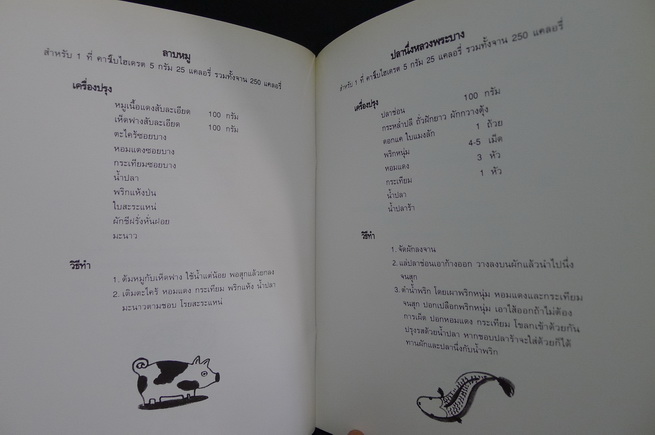 ลาบหมู
สำหรับ 1 ที่ คาร์โบไฮเดรต 5 กรัม 25 แคลอรี่ รวมทั้งจาน 250 แคลอรี่
เครื่องปรุง
หมูเนื้อแดงสับละเอียด 100 กรัม
เห็ดฟางสับละเอียด 100 กรัม
ตะไคร้ซอยบาง
หอมแดงซอยบาง
กระเทียมซอยบาง
น้ำปลา
พริกแห้งป่น
ใบสะระแหน่
ผักชีฝรั่งหั่นฝอย
มะนาว
วิธีทำ
1. ต้มหมูกับเห็ดฟาง ใช้น้ำแต่น้อย พอสุกแล้วยกลง
2. เติมตะไคร้ หอมแดง กระเทียม พริกแห้ง น้ำปลา
มะนาวตามชอบ โรยสะระแหน่
ปลานึ่งหลวงพระบาง
สำหรับ 1 ที่ คาร์โบไฮเดรต 5 กรัม 25 แคลอรี่ รวมทั้งจาน 250 แคลอรี่
เครื่องปรุง
ปลาช่อน 100 กรัม
กระหล่ำปลี ถั่วฝักยาว ผักกวางตุ้ง
ดอกแค ใบแมงลัก 1 ถ้วย
พริกหนุ่ม 4-5 เม็ด
หอมแดง 3 หัว
กระเทียม 1 หัว
น้ำปลา
น้ำปลาร้า
วิธีทำ
1. จัดผักลงจาน
2. แล่ปลาช่อนเอาก้างออก วางลงบนผักแล้วนำไปนึ่ง
จนสุก
3. ตำน้ำพริก โดยเผาพริกหนุ่ม หอมแดงและกระเทียม
จนสุก ปอกเปลือกพริกหนุ่ม เอาไส้ออกถ้าไม่ต้อง
การเผ็ด ปอกหอมแดง กระเทียม โขลกเข้าด้วยกัน
ปรุงรสด้วยน้ำปลา หากชอบปลาร้าจะใส่ด้วยก็ได้
ทานผักและปลานึ่งกับน้ำพริก